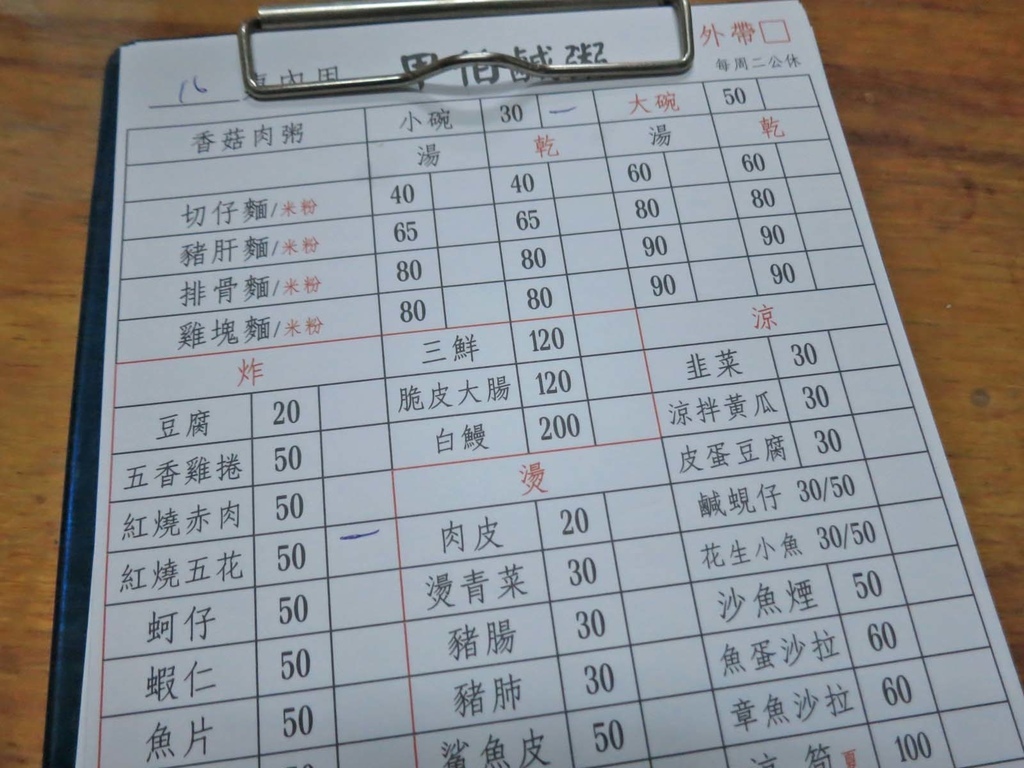 外帶□
16 桌內用 周伯鹹粥 每周二公休
香菇肉粥 小碗 30 一 大碗 50
湯 乾 湯 乾
切仔麵/米粉 40 40 60 60
豬肝麵/米粉 65 65 80 80
排骨麵/米粉 80 80 90 90
雞塊麵/米粉 80 80 90 90
炸
豆腐 20
五香雞捲 50
紅燒赤肉 50
紅燒五花 50 一
蚵仔 50
蝦仁 50
魚片 50
三鮮 120
脆皮大腸 120
白鰻 200
燙
肉皮 20
燙青菜 30
豬腸 30
豬肺 30
鯊魚皮 50
涼
韭菜 30
涼拌黃瓜 30
皮蛋豆腐 30
鹹蜆仔 30/50
花生小魚 30/50
沙魚煙 50
魚蛋沙拉 60
章魚沙拉 60
涼筍 夏 100